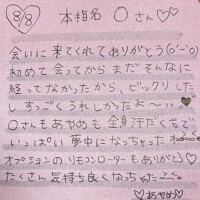 8/8 本指名 Oさん♡♡
会いに来てくれてありがとう(o'ー'o)
初めて会ってからまだそんなに
経ってなかったから、ビックリした
し すっごくうれしかったよ〜っっ
Oさんもあやめも全身汗だくで
いっぱい夢中になっちゃったね
オプションのリモコンローターもありがとう♡
たくさん気持ち良くなっちゃった
♡あやめ♡